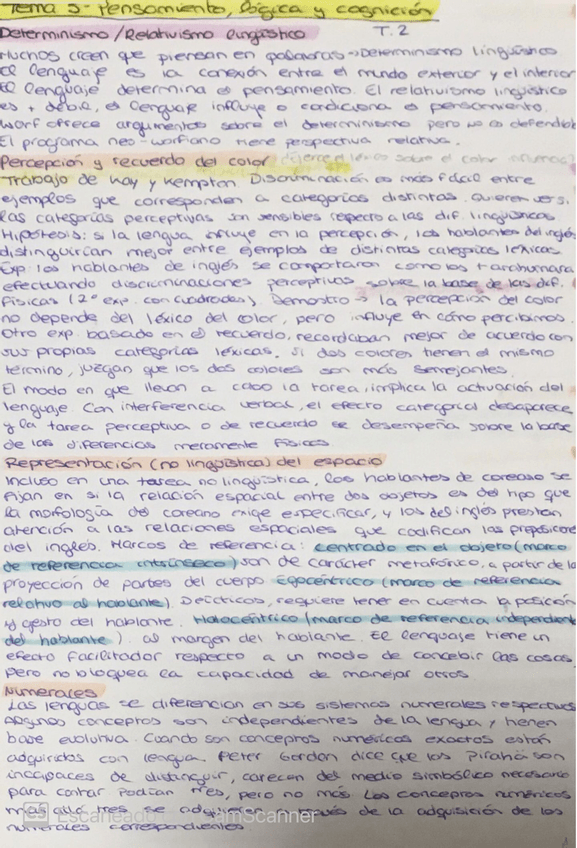 Tema 3 - Pensamiento, lógica y cognición
Determinismo/Relativismo lingüístico T.2
Muchos creen que piensan en palabras → Determinismo lingüístico
El lenguaje es la conexión entre el mundo exterior y el interior
El lenguaje determina el pensamiento. El relativismo lingüístico
es + débil, el lenguaje influye o condiciona el pensamiento.
Worf ofrece argumentos sobre el determinismo pero no es defendible
El programa neo-worfiano tiene perspectiva relativa.
Percepción y recuerdo del color sobre el color
Trabajo de Kay y Kempton. Discriminación es más fácil entre
ejemplos que corresponden a categorías distintas. Quieren ver si
las categorías perceptivas son sensibles respecto a las dif. lingüísticas
Hipótesis: si la lengua influye en la percepción, los hablantes del inglés
distinguirían mejor entre ejemplos de distintas categorías léxicas.
Exp: los hablantes de inglés se comportaron como los tarahumara
efectuando discriminaciones perceptivas sobre la base de las dif.
físicas (2º exp. con cuadrados). Demostró → la percepción del color
no depende del léxico del color, pero influye en cómo percibimos.
Otro exp. basado en el recuerdo, recordaban mejor de acuerdo con
sus propias categorías léxicas. Si dos colores tienen el mismo
término, juzgan que los dos colores son más semejantes.
El modo en que llevan a cabo la tarea, implica la activación del
lenguaje. Con interferencia verbal, el efecto categorial desaparece,
y la tarea perceptiva o de recuerdo se desempeña sobre la base
de las diferencias meramente físicas.
Representación (no lingüística) del espacio
Incluso en una tarea no lingüística, los hablantes de coreano se
fijan en si la relación espacial entre dos objetos es del tipo que
la morfología del coreano exige especificar, y los del inglés prestan
atención a las relaciones espaciales que codifican las preposiciones
del inglés. Marcos de referencia: centrado en el objeto (marco
de referencia intrínseco) son de carácter metafórico, a partir de la
proyección de partes del cuerpo Egocéntrico (marco de referencia
relativo al hablante). Deícticos, requiere tener en cuenta la posición
y gesto del hablante. Halocéntrico (marco de referencia independiente
del hablante). al margen del hablante. El lenguaje tiene un
efecto facilitador respecto a un modo de concebir las cosas,
pero no bloquea la capacidad de manejar otros.
Numerales
Las lenguas se diferencian en sus sistemas numerales respectivos
Algunos conceptos son independientes de la lengua y tienen
base evolutiva. Cuando son conceptos numéricos exactos están
adquiridos con lengua. Peter Gordon dice que los Pirahã son
incapaces de distinguir, carecen del medio simbólico necesario
para contar. Podían tres, pero no más. Los conceptos numéricos
más allá tres se adquieren a través de la adquisición de los
numerales correspondientes
CS Escaneado con CamScanner